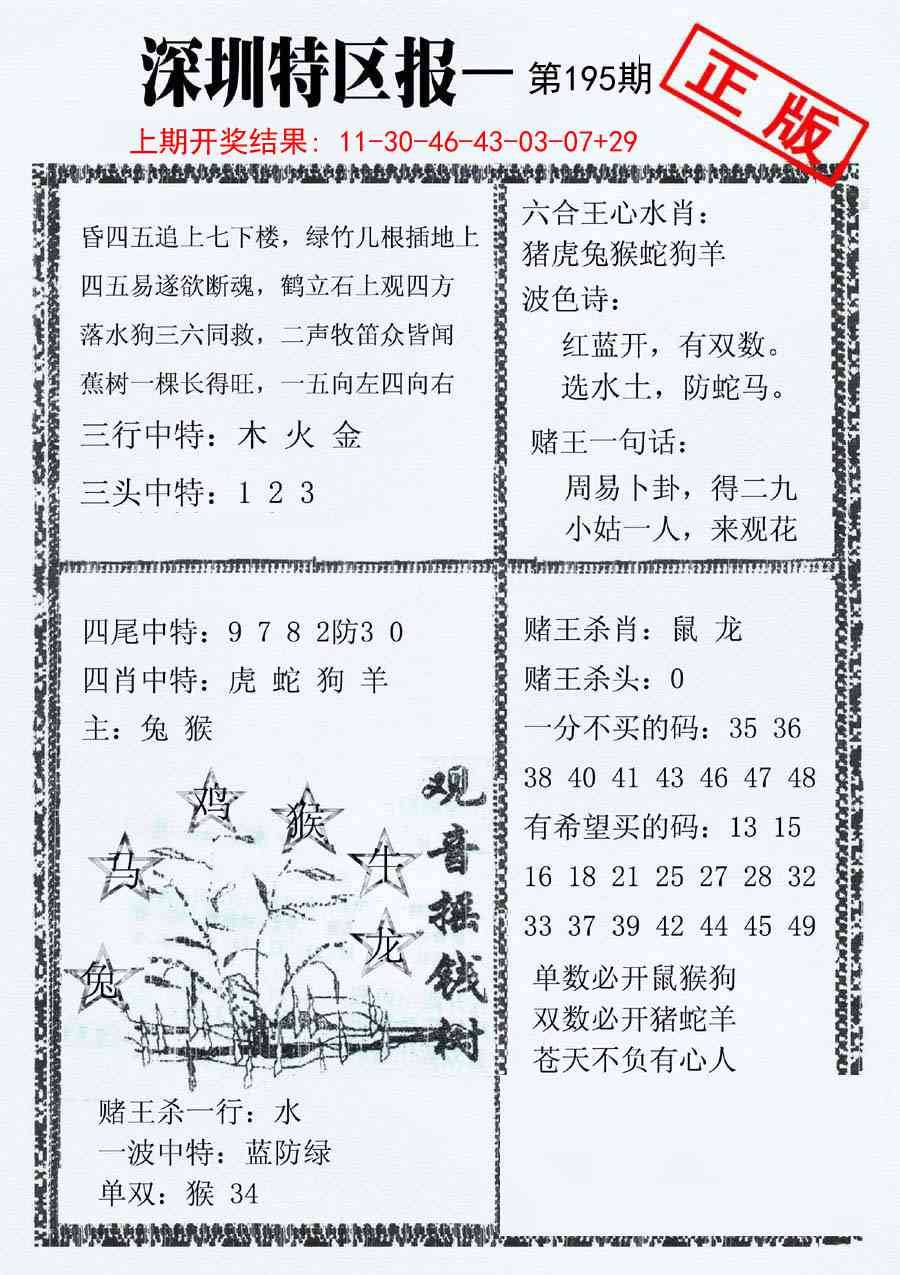 深圳特区报一 第195期
正版
上期开奖结果：11-30-46-43-03-07+29
昏四五追上七下楼，绿竹几根插地上
四五易遂欲断魂，鹤立石上观四方
落水狗三六同救，二声牧笛众皆闻
蕉树一棵长得旺，一五向左四向右
三行中特：木 火 金
三头中特：1 2 3
六合王心水肖：
猪虎兔猴蛇狗羊
波色诗：
红蓝开，有双数。
选水土，防蛇马。
赌王一句话：
周易卜卦，得二九
小姑一人，来观花
四尾中特：9 7 8 2防3 0
四肖中特：虎 蛇 狗 羊
主：兔 猴
鸡
猴
马
牛
龙
兔
观音摇钱树
赌王杀一行：水
一波中特：蓝防绿
单双：猴 34
赌王杀肖：鼠 龙
赌王杀头：0
一分不买的码：35 36
38 40 41 43 46 47 48
有希望买的码：13 15
16 18 21 25 27 28 32
33 37 39 42 44 45 49
单数必开鼠猴狗
双数必开猪蛇羊
苍天不负有心人